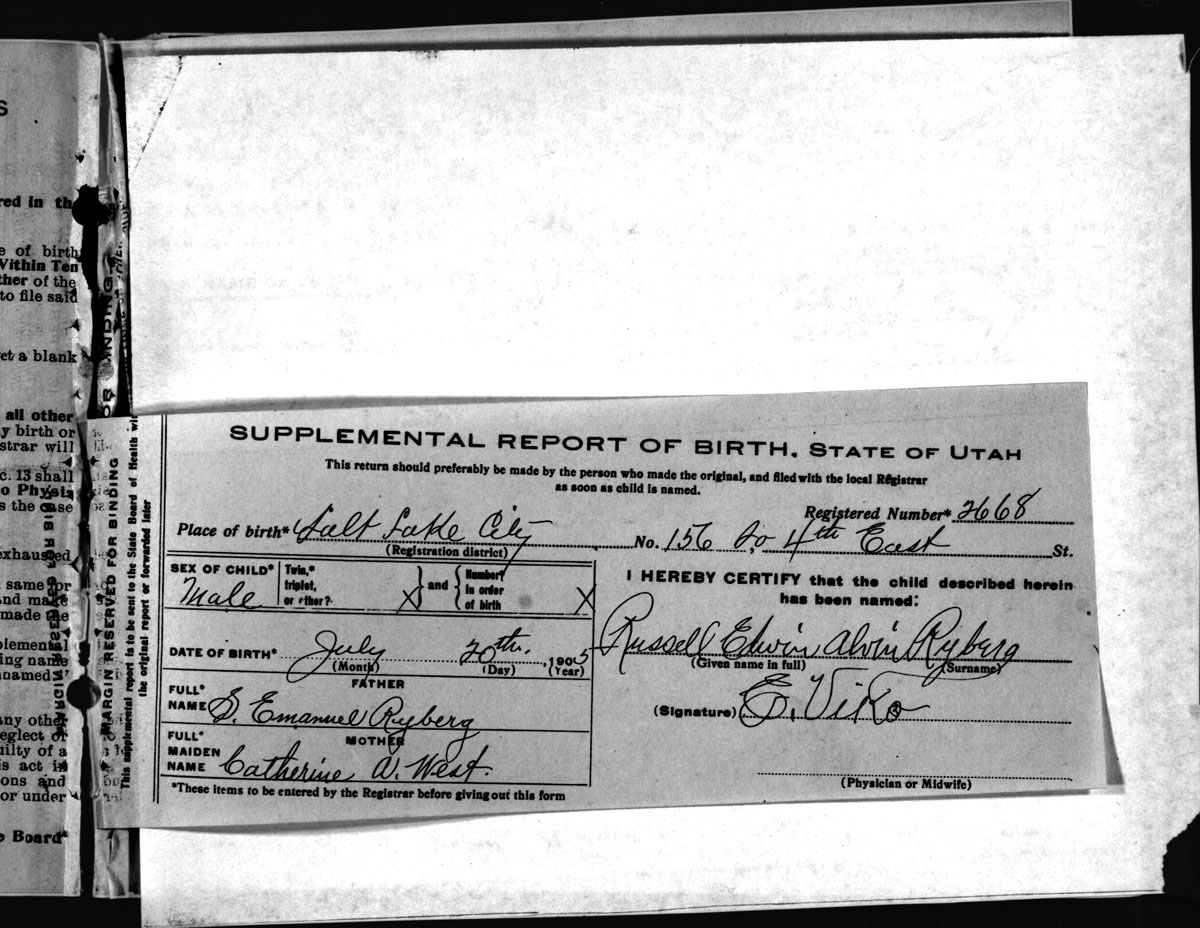 S
red in th
e of birth
Within Ten
ther of the
to file said
et a blank
all other
y birth or
strar will
c. 13 shall
o Physi-
s the case
exhausted
same for
and make
made the
plemental
ing name
named."
any other
eglect or
uilty of a
is act in
ons and
or under
e Board
MARGIN RESERVED FOR BINDING
This supplemental report is to be sent to the State Board of Health wi
the original report or forwarded later
SUPPLEMENTAL REPORT OF BIRTH, STATE OF UTAH
This return should preferably be made by the person who made the original, and filed with the local Registrar
as soon as child is named.
Registered Number* 2668
Place of birth* Salt Lake City No. 156 So 4th East St.
(Registration district)
SEX OF CHILD* Male
Twin,* triplet, or other? X } and { Number in order of birth X
DATE OF BIRTH* July 20th. , 1905
(Month) (Day) (Year)
FATHER
FULL* NAME S. Emanuel Ryberg
MOTHER
FULL* MAIDEN NAME Catherine A. West.
*These items to be entered by the Registrar before giving out this form
I HEREBY CERTIFY that the child described herein
has been named:
Russell Edwin Alvin Ryberg
(Given name in full) (Surname)
(Signature) E. Viko
(Physician or Midwife)